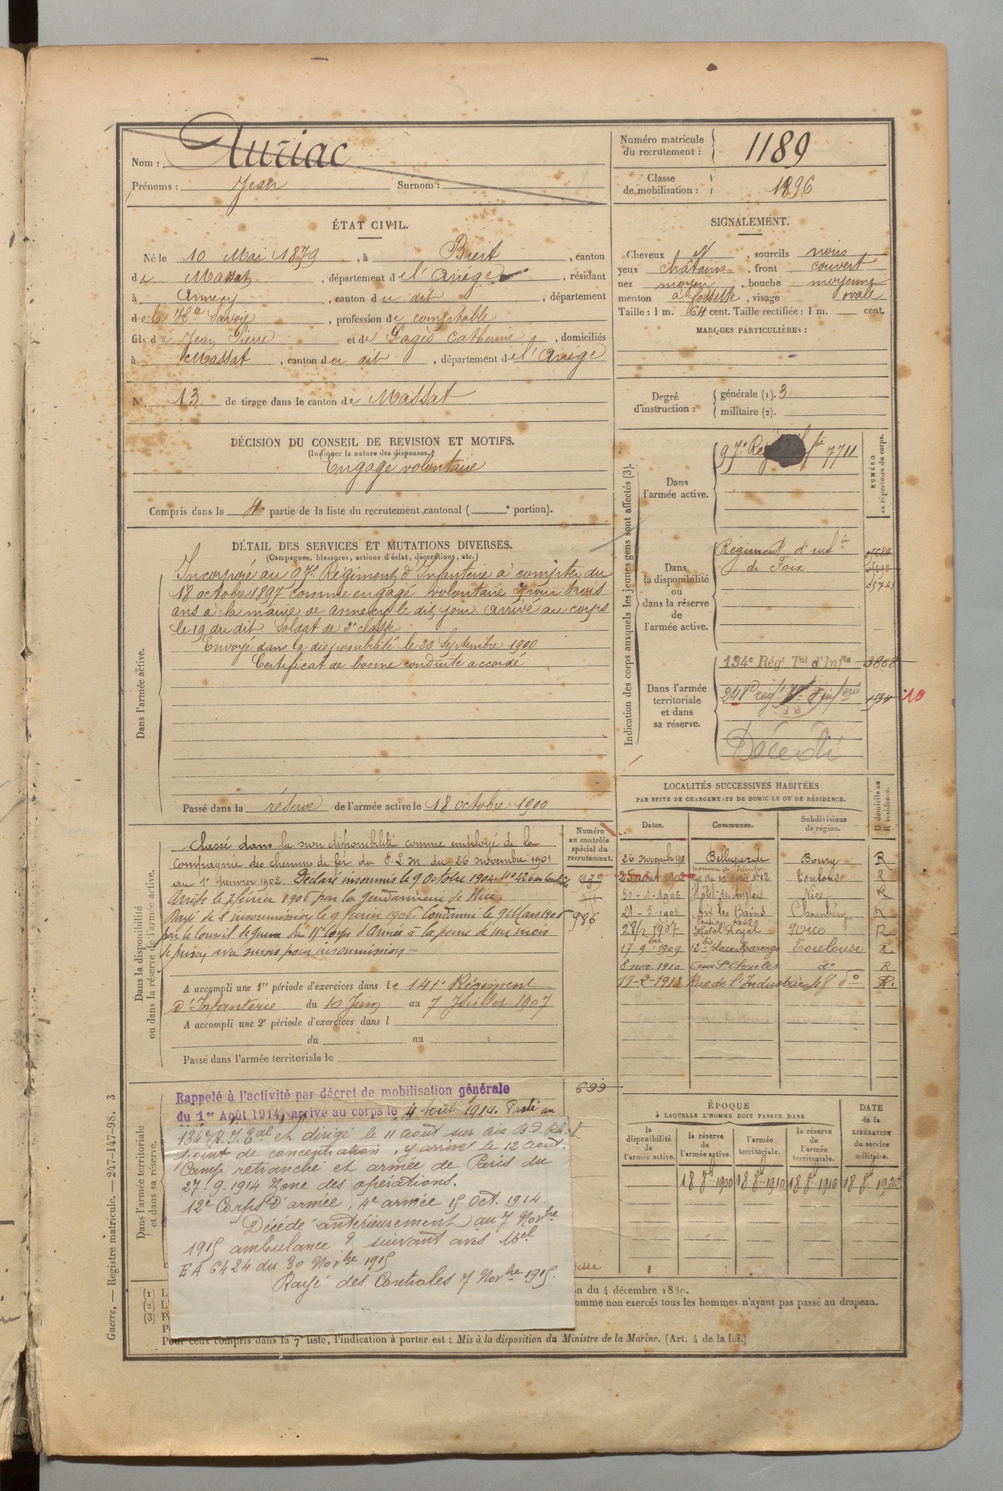 Nom : Auriac
Prénoms : Jean Surnom :
Numéro matricule du recrutement : 1189
Classe de mobilisation : 1896
ÉTAT CIVIL.
Né le 10 Mai 1879, à Biert, canton
de Massat, département de l'Ariège, résidant
à Annecy, canton du dit, département
de la Hte Savoie, profession de comptable
fils de Jean Pierre et de Gagès Catherine, domiciliés
à Massat, canton du dit, département de l'Ariège
N° 13 de tirage dans le canton de Massat
SIGNALEMENT.
Cheveux et, sourcils noirs
yeux châtains, front couvert
nez moyen, bouche moyenne
menton à fossette, visage ovale
Taille : 1 m. 64 cent. Taille rectifiée : 1 m. cent.
MARQUES PARTICULIÈRES :
Degré d'instruction : générale (1). 3
militaire (2).
DÉCISION DU CONSEIL DE REVISION ET MOTIFS.
(Indiquer la nature des dispenses.)
Engagé volontaire
Compris dans la 4e partie de la liste du recrutement cantonal ( e portion).
DÉTAIL DES SERVICES ET MUTATIONS DIVERSES.
(Campagnes, blessures, actions d'éclat, décorations, etc.)
Dans l'armée active.
Incorporé au 97e Régiment d'Infanterie à compter du
18 octobre 1897 comme engagé volontaire pour trois
ans à la mairie de Annecy le dit jour arrivé au corps
le 19 du dit Soldat de 2e classe
Envoyé dans la disponibilité le 23 Septembre 1900
Certificat de bonne conduite accordé
Passé dans la réserve de l'armée active le 18 octobre 1900
Indication des corps auxquels les jeunes gens sont affectés (3).
NUMÉRO au répertoire du corps.
Dans l'armée active. 97e 7711
Dans la disponibilité ou dans la réserve de l'armée active.
Régiment d'infie
de Foix
Dans l'armée territoriale et dans sa réserve.
134e Régt Tal d'Infie 3808
Décédé
LOCALITÉS SUCCESSIVES HABITÉES
PAR SUITE DE CHANGEMENTS DE DOMICILE OU DE RÉSIDENCE.
Dates. Communes. Subdivisions de région. D domicile ou R résidence.
Bellegarde Bourg R
Toulouse R
Nice R
Aix les Bains Chambéry R
Hôtel Royal Nice R
17 9bre 1909 Toulouse R
8 nov. 1910 do R
Rue de l'Industrie 18 do R.
Dans la disponibilité ou dans la réserve de l'armée active.
Numéro au contrôle spécial du recrutement.
Classé dans la non disponibilité comme employé de la
Compagnie des chemins de fer du P L M du 26 novembre 1901
au 1er Janvier 1902. Déclaré insoumis le 9 octobre 1904
Arrêté le 7 février 1906 par la Gendarmerie de Nice
Rayé de l'insoumission le 9 février 1906. Condamné le 9 Mars 1906
par le Conseil de guerre du 15e Corps d'Armée à la peine de un mois
de prison avec sursis pour insoumission
986
A accompli une 1re période d'exercices dans le 141e Régiment
d'Infanterie du 10 Juin au 7 Juillet 1907
A accompli une 2e période d'exercices dans l
du au
Passé dans l'armée territoriale le
Dans l'armée territoriale et dans sa réserve.
Rappelé à l'activité par décret de mobilisation générale 699
du 1er Août 1914, arrivé au corps le 4 Août 1914. Passé au
134e R. I. Tal et dirigé le 11 août sur
point de concentration. Y arrivé le 12 Août.
Camp retranché et armée de Paris du
27-9-1914 Zone des opérations.
12e Corps d'armée, 4e armée 15 Oct. 1914.
Décédé antérieurement au 7 Novbre
1915 ambulance 9 suivant avis Mel
EA 6424 du 30 Novbre 1915
Rayé des Contrôles 7 Novbre 1915.
ÉPOQUE
À LAQUELLE L'HOMME DOIT PASSER DANS
la disponibilité de l'armée active.
la réserve de l'armée active.
l'armée territoriale.
la réserve de l'armée territoriale.
DATE de la LIBÉRATION du service militaire.
18 8bre 1900 18 8bre 1910 18 8bre 1916
n du 4 décembre 1889.
omme non exercés tous les hommes n'ayant pas passé au drapeau.
Pour ceux compris dans la 7e liste, l'indication à porter est : Mis à la disposition du Ministre de la Marine. (Art. 4 de la loi.)
Guerre. — Registre matricule. — 247-147-98. 3